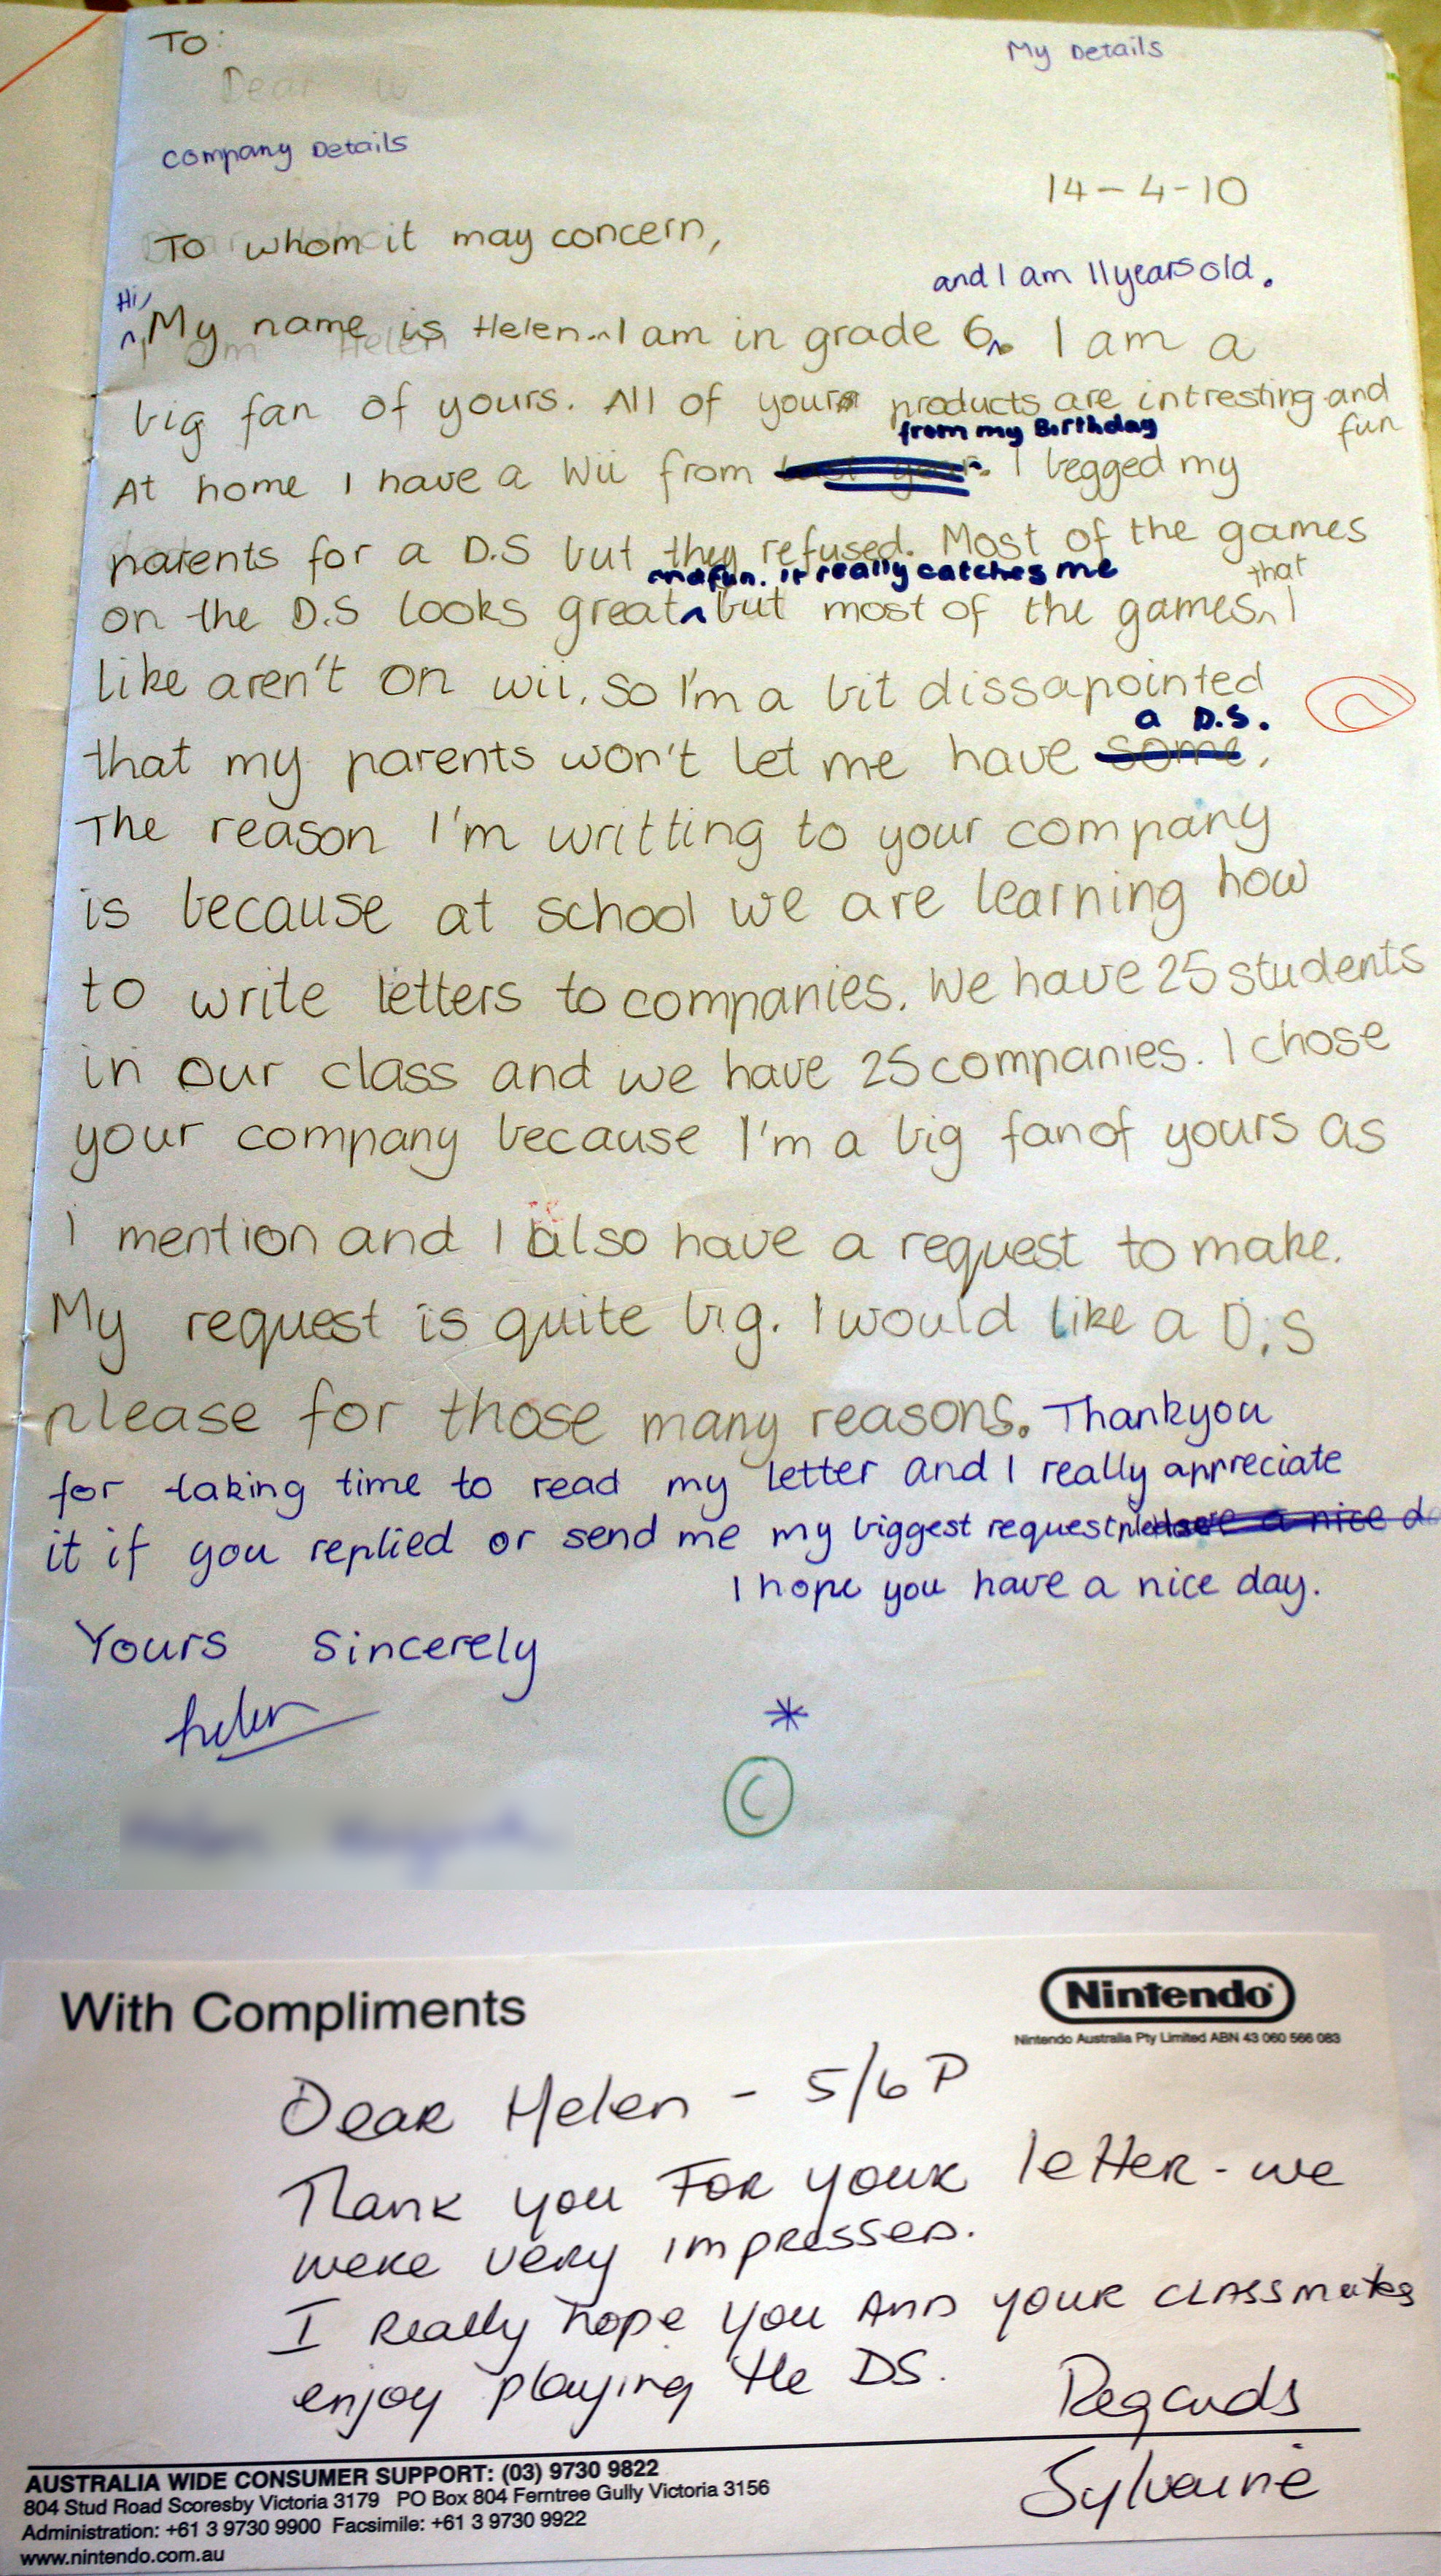 TO:
My Details
Dear w
Company Details
14-4-10
To whom it may concern,
and I am 11 years old.
Hi,
My name is Helen. I am in grade 6. I am a
big fan of yours. All of your products are intresting and
fun
from my Birthday
At home I have a Wii from last year. I begged my
parents for a D.S but they refused. Most of the games
and fun. It really catches me
that
on the D.S looks great but most of the games I
like aren't on wii. So I'm a bit dissapointed
a D.S.
that my parents won't let me have some.
The reason I'm writting to your company
is because at school we are learning how
to write letters to companies. We have 25 students
in our class and we have 25 companies. I chose
your company because I'm a big fan of yours as
I mention and I also have a request to make.
My request is quite big. I would like a D.S
please for those many reasons. Thankyou
for taking time to read my letter and I really appreciate
it if you replied or send me my biggest request please have a nice da
I hope you have a nice day.
Yours Sincerely
helen
*
C
With Compliments
Nintendo
Nintendo Australia Pty Limited ABN 43 060 566 083
Dear Helen - 5/6 P
Thank you for your letter - we
were very impressed.
I really hope you and your classmates
enjoy playing the DS.
Regards
Sylvaine
AUSTRALIA WIDE CONSUMER SUPPORT: (03) 9730 9822
804 Stud Road Scoresby Victoria 3179 PO Box 804 Ferntree Gully Victoria 3156
Administration: +61 3 9730 9900 Facsimile: +61 3 9730 9922
www.nintendo.com.au